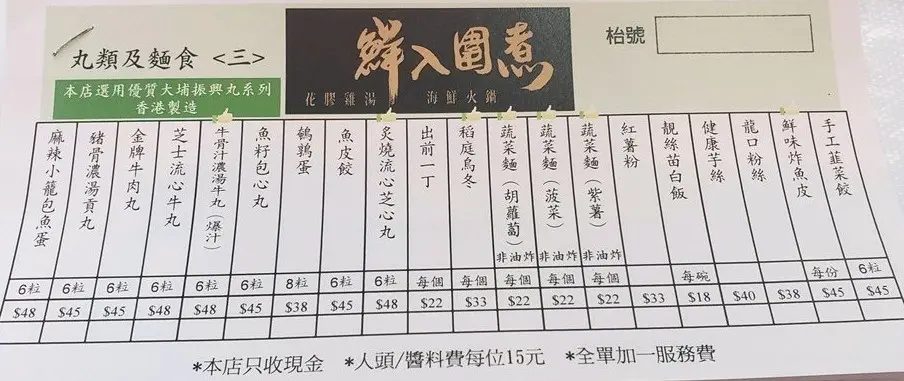 丸類及麵食 <三>
本店選用優質大埔振興丸系列
香港製造
鮮入圍煮
花膠雞湯 海鮮火鍋
枱號
手工韮菜餃
鮮味炸魚皮
龍口粉絲
健康芋絲
靚絲苗白飯
紅薯粉
蔬菜麵(紫薯)非油炸
蔬菜麵(菠菜)非油炸
蔬菜麵(胡蘿蔔)非油炸
稻庭烏冬
出前一丁
炙燒流心芝心丸
魚皮餃
鵪鶉蛋
魚籽包心丸
牛骨汁濃湯牛丸(爆汁)
芝士流心牛丸
金牌牛肉丸
豬骨濃湯貢丸
麻辣小龍包魚蛋
6粒 6粒 6粒 6粒 6粒 6粒 8粒 6粒 6粒 每個 每個 每個 每個 每個 每碗 每份 6粒
$48 $45 $45 $48 $48 $45 $38 $45 $48 $22 $33 $22 $22 $22 $33 $18 $40 $38 $45 $45
*本店只收現金 *人頭/醬料費每位15元 *全單加一服務費